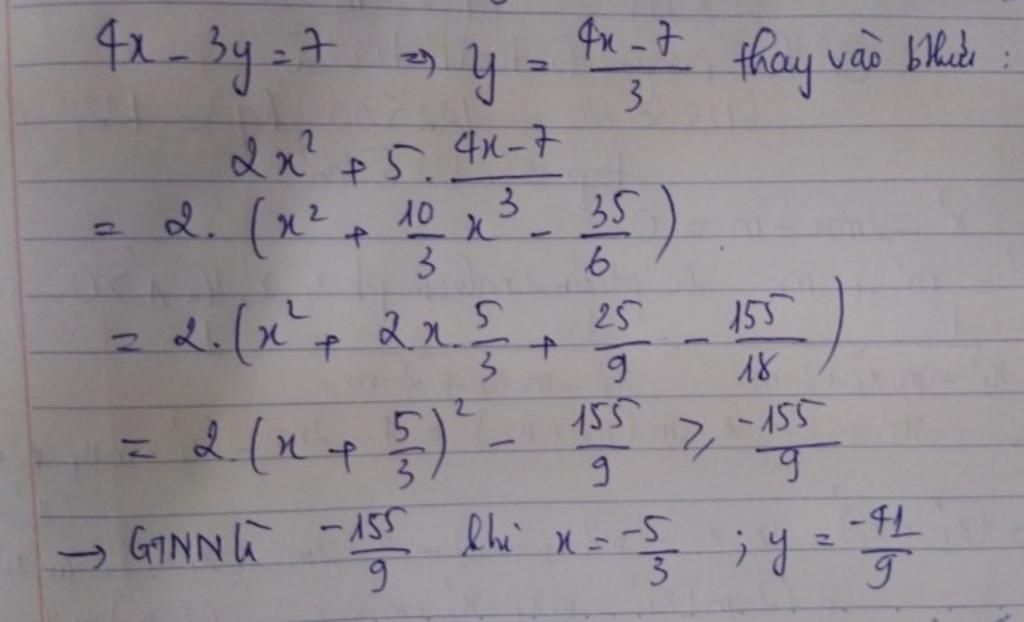 4x - 3y = 7 => y = \frac{4x-7}{3} thay vào bthức :
2x² + 5 . \frac{4x-7}{3}
= 2. (x² + \frac{10}{3} x - \frac{35}{6})
= 2. (x² + 2x. \frac{5}{3} + \frac{25}{9} - \frac{155}{18})
= 2. (x + \frac{5}{3})² - \frac{155}{9} ≥ \frac{-155}{9}
→ GTNN là \frac{-155}{9} khi x = \frac{-5}{3} ; y = \frac{-41}{9}